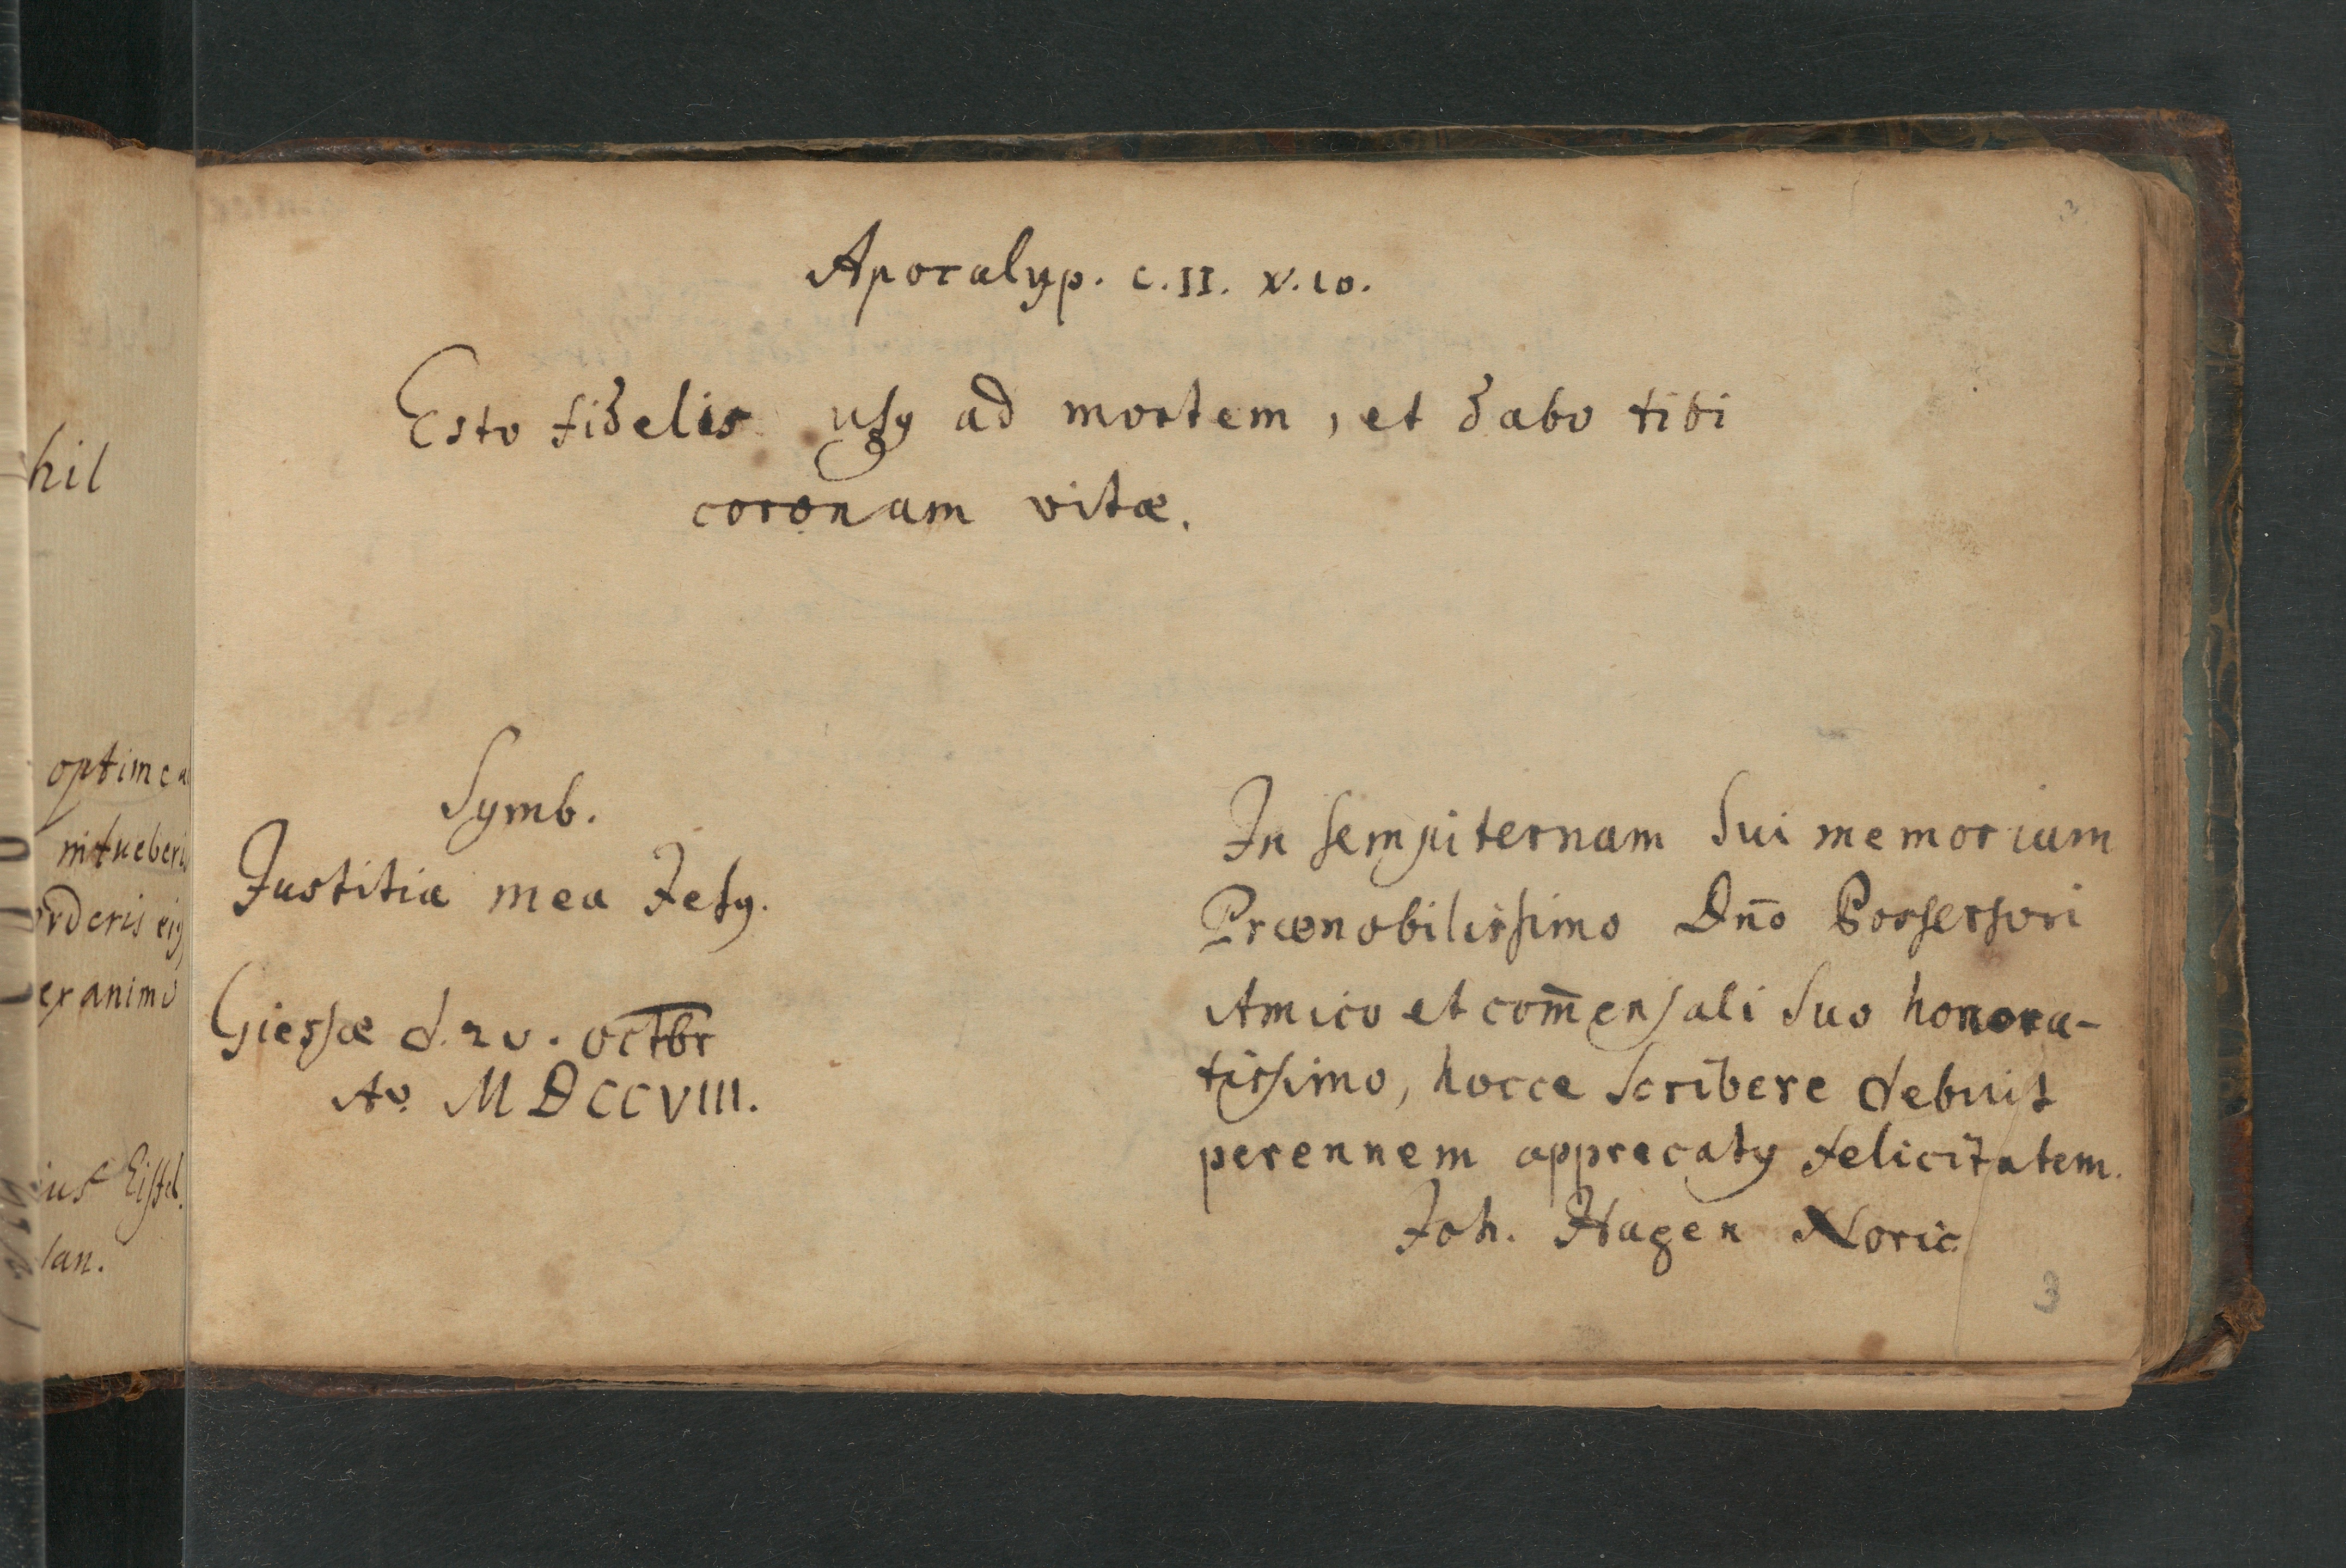 Apocalyp. c. II. v. 10.
Esto fidelis usq ad mortem, et dabo tibi
coronam vitæ.
Symb.
Justitia mea Jesus.
Giessæ d. 20. octbr
Ao. MDCCVIII.
In sempiternam sui memoriam
Prænobilissimo Dno Possessori
Amico et com̅ensali suo honora-
tissimo, hocce scribere debuit
perennem apprecatus felicitatem.
Joh. Hagen Noric.
3
hil
optime
intueberis
ex animo